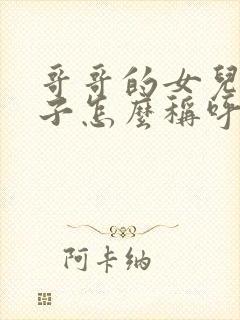 哥哥的女兒
子怎麼稱呼
阿卡納